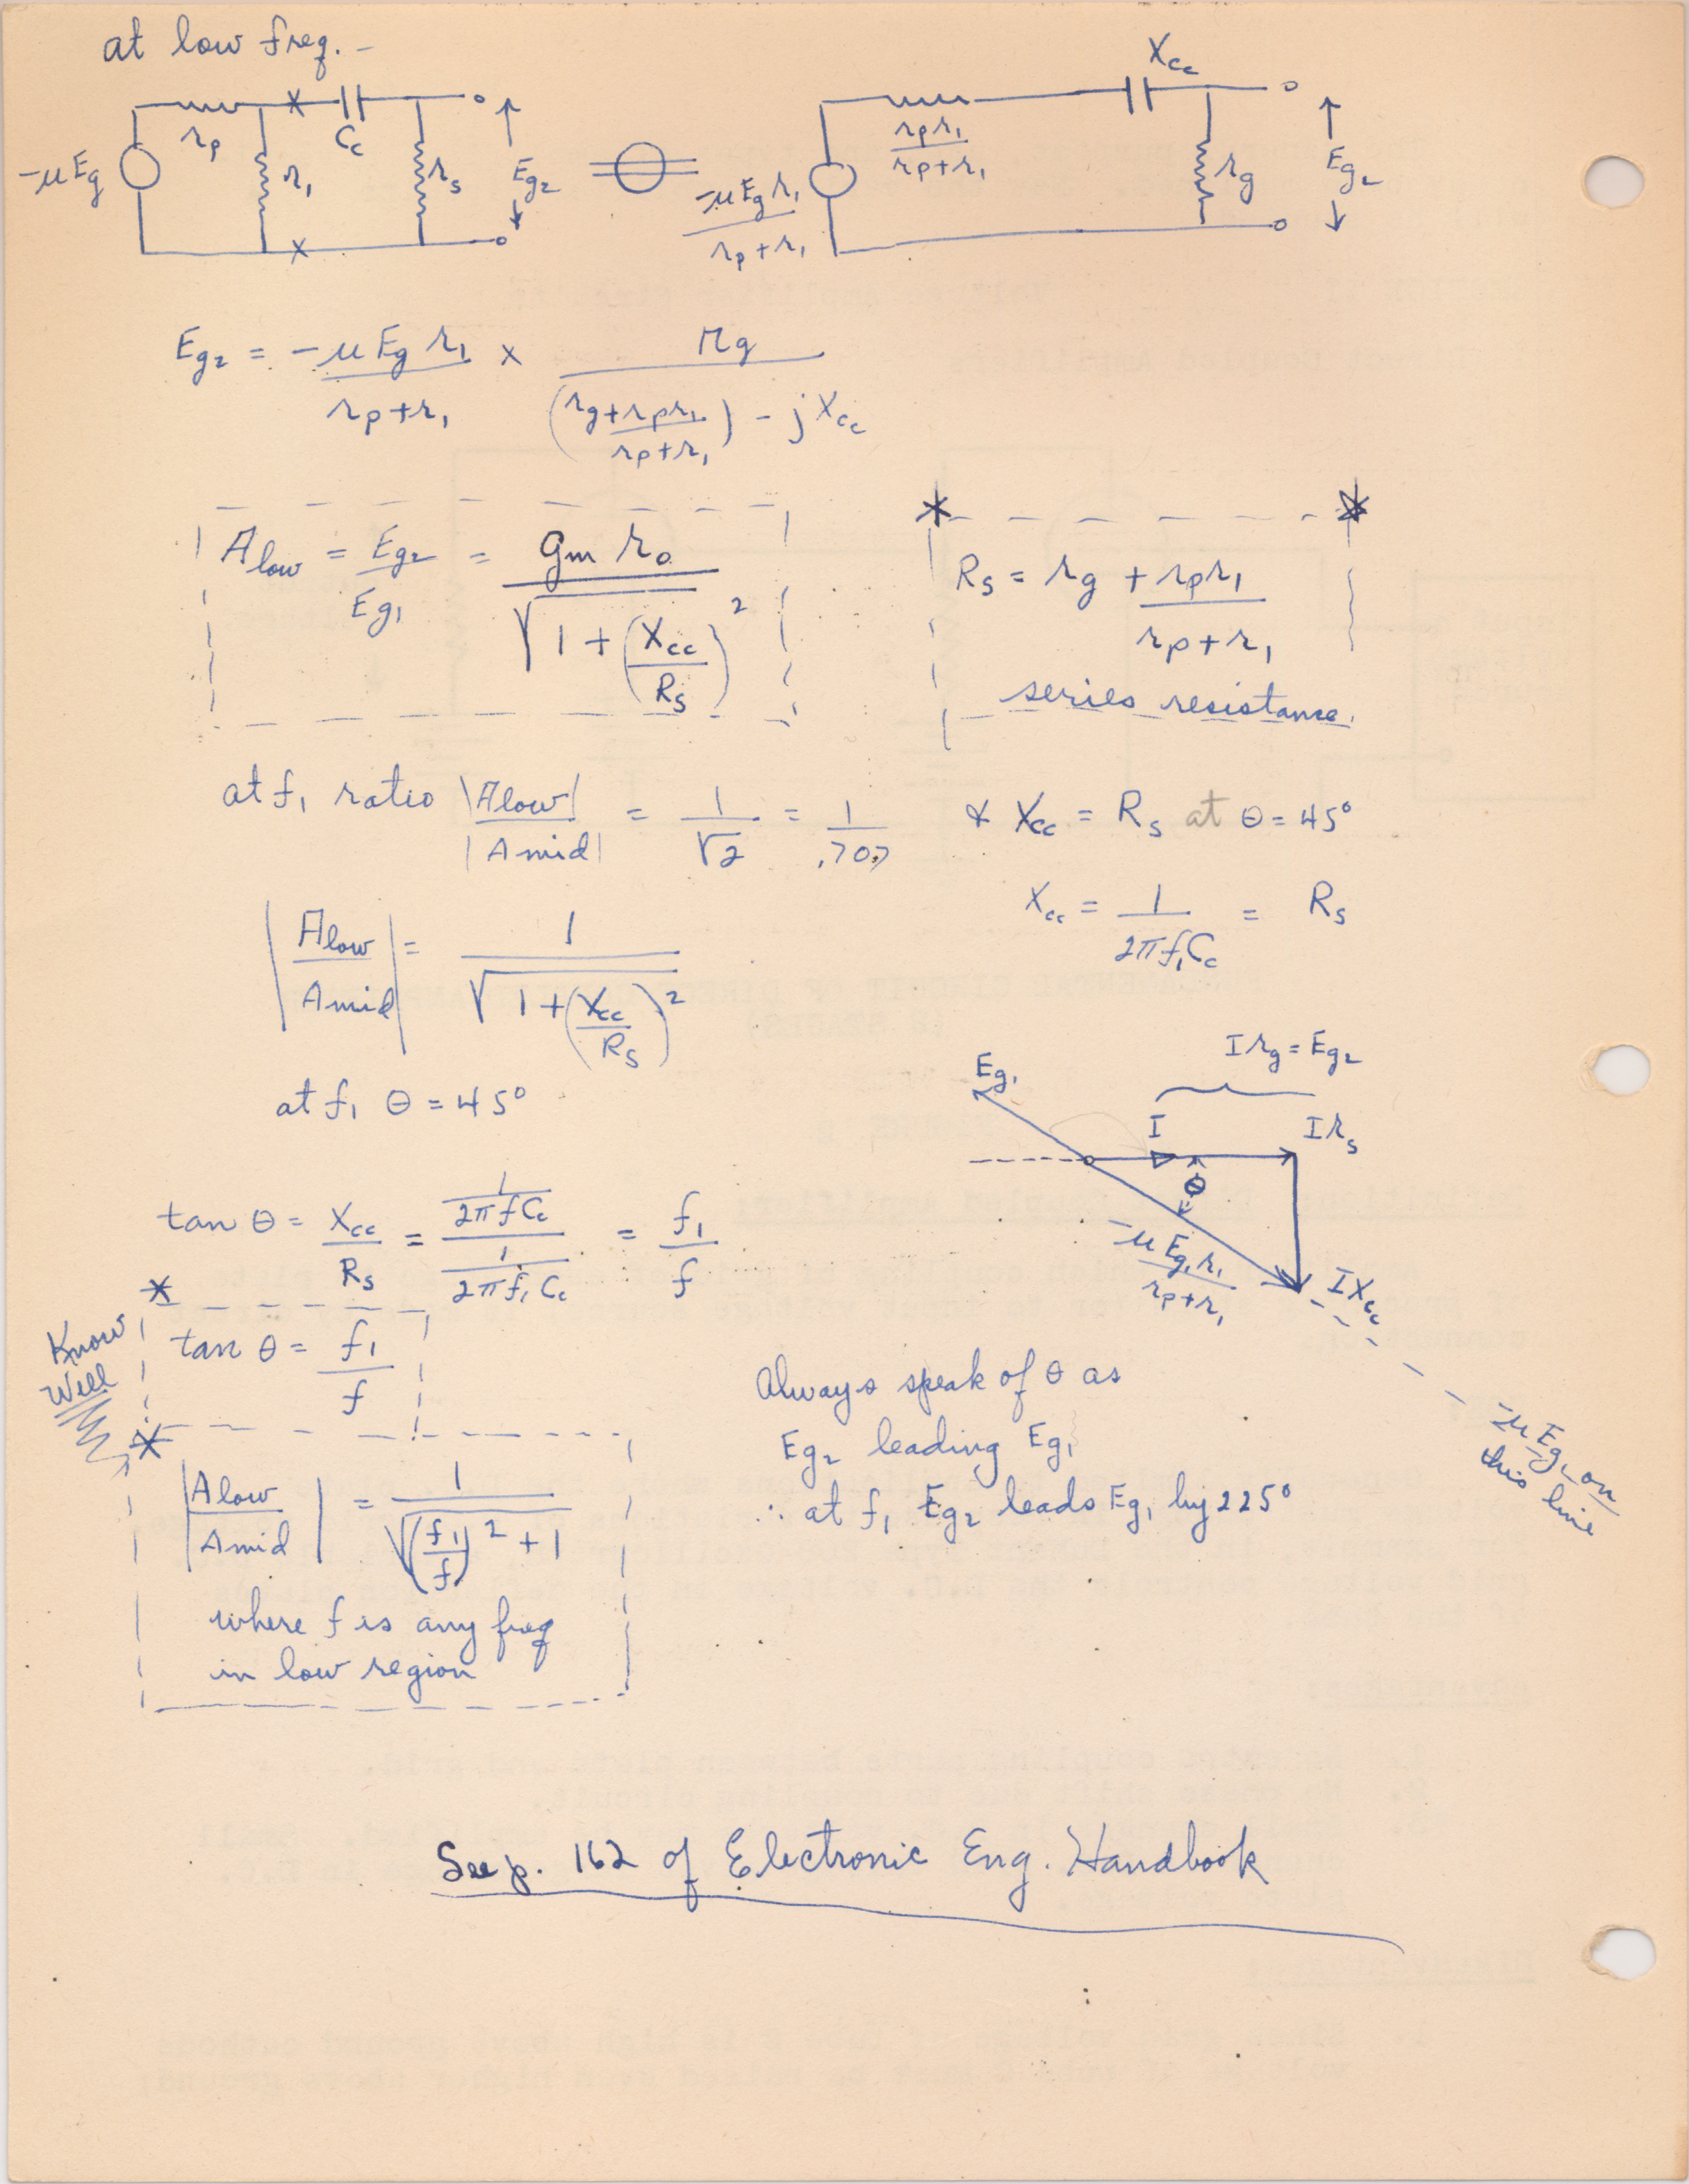 at low freq. -
rp
r₁
Cc
rs
-μEg
Eg₂
Xcc
rpr₁
rp+r₁
-μEg r₁
rp+r₁
rg
Eg₂
Eg₂ = -μEg r₁ / rp+r₁ × rg / (rg + rpr₁ / rp+r₁) - jXcc
A low = Eg₂ / Eg₁ = gm ro / √1 + (Xcc / Rs)²
* *
Rs = rg + rpr₁ / rp+r₁
series resistance.
at f₁ ratio |A low| / |A mid| = 1 / √2 = 1 / .707
& Xcc = Rs at θ = 45°
Xcc = 1 / 2πf₁Cc = Rs
|A low / A mid| = 1 / √1 + (Xcc / Rs)²
at f₁ θ = 45°
Irg = Eg₂
Eg₁
I
Irs
θ
-μEg₁r₁
rp+r₁
IXcc
-μEg₁ on
this line
tan θ = Xcc / Rs = 1 / 2πfCc / 1 / 2πf₁Cc = f₁ / f
*
Know
Well
tan θ = f₁ / f
*
|A low / A mid| = 1 / √(f₁ / f)² + 1
where f is any freq
in low region
Always speak of θ as
Eg₂ leading Eg₁
∴ at f₁ Eg₂ leads Eg₁ by 225°
See p. 162 of Electronic Eng. Handbook